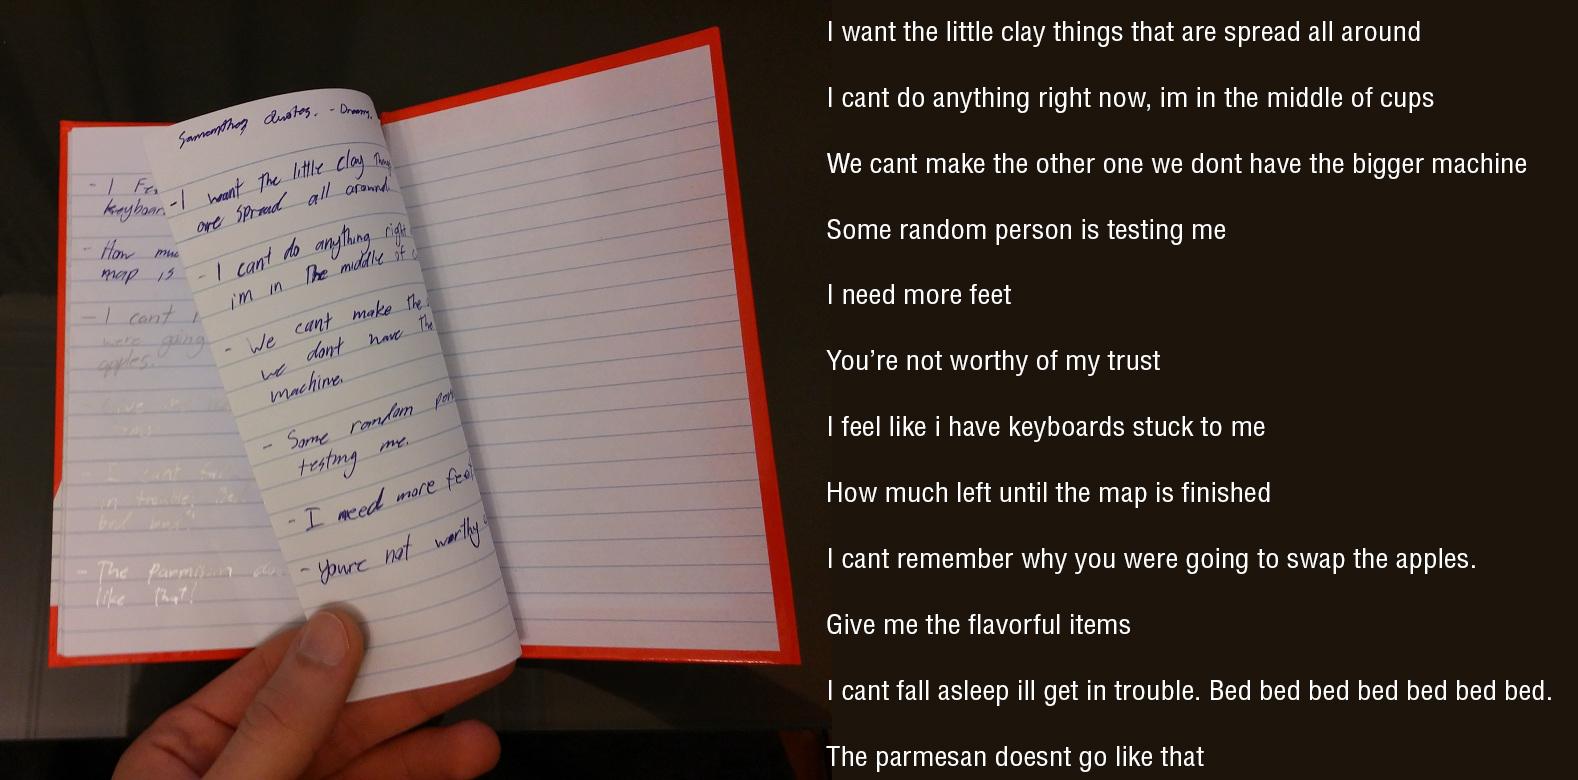 Samantha quotes. - Dreams.
- I want the little clay things
are spread all around.
- I cant do anything right
im in the middle of
- We cant make the
we dont have the
machine.
- Some random
testing me.
- I need more feet
- Youre not worthy
- I
keyboar
- How muc
map is
- I cant
were going
apples.
- Give
- I cant fall
in trouble. Be
bed bed"
- The parmisian do
like that!
I want the little clay things that are spread all around
I cant do anything right now, im in the middle of cups
We cant make the other one we dont have the bigger machine
Some random person is testing me
I need more feet
You’re not worthy of my trust
I feel like i have keyboards stuck to me
How much left until the map is finished
I cant remember why you were going to swap the apples.
Give me the flavorful items
I cant fall asleep ill get in trouble. Bed bed bed bed bed bed bed.
The parmesan doesnt go like that